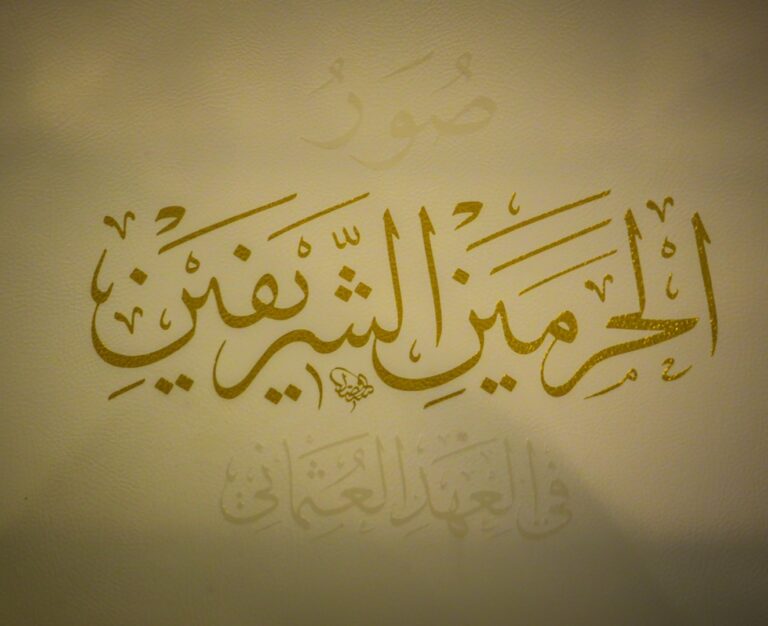 صُوَرُ
الحرمين الشّريفين
في العهد العثماني